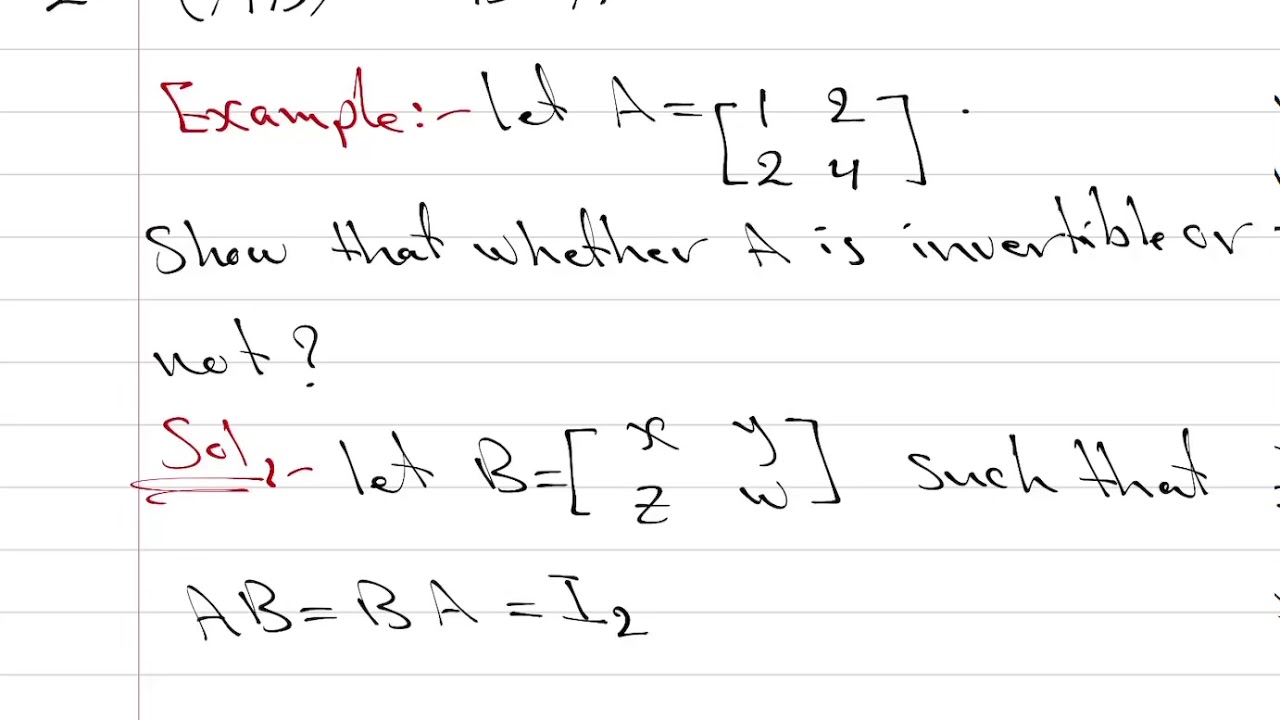 Example:- let A = [1 2
2 4] .
Show that whether A is invertible or
not?
Sol:- let B = [x y
z w] such that
AB = BA = I₂